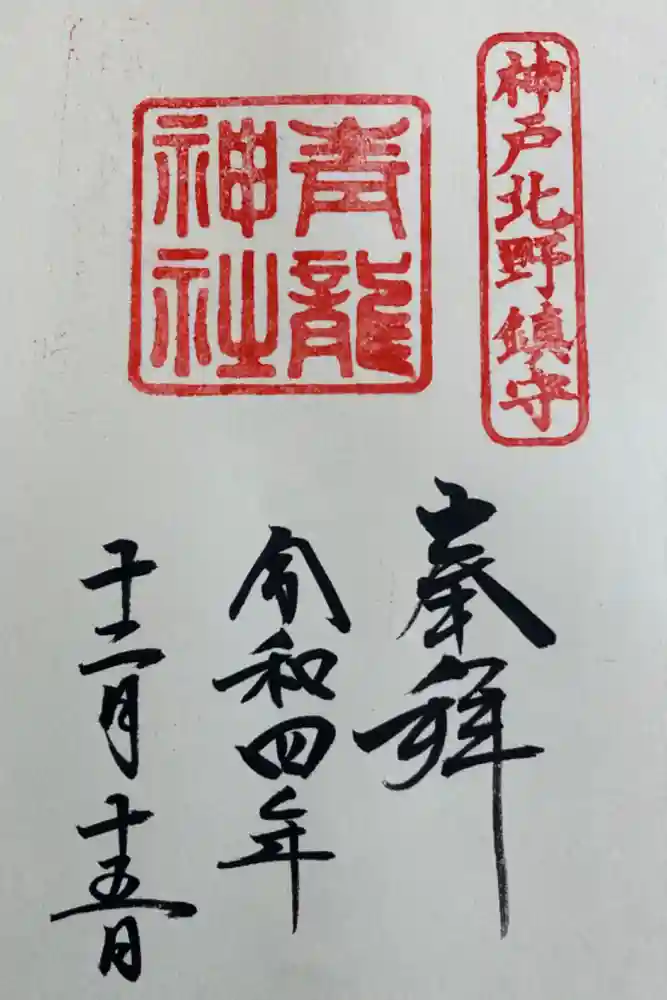 神戸北野鎮守
青龍
神社
奉拝
令和四年
十二月十五日